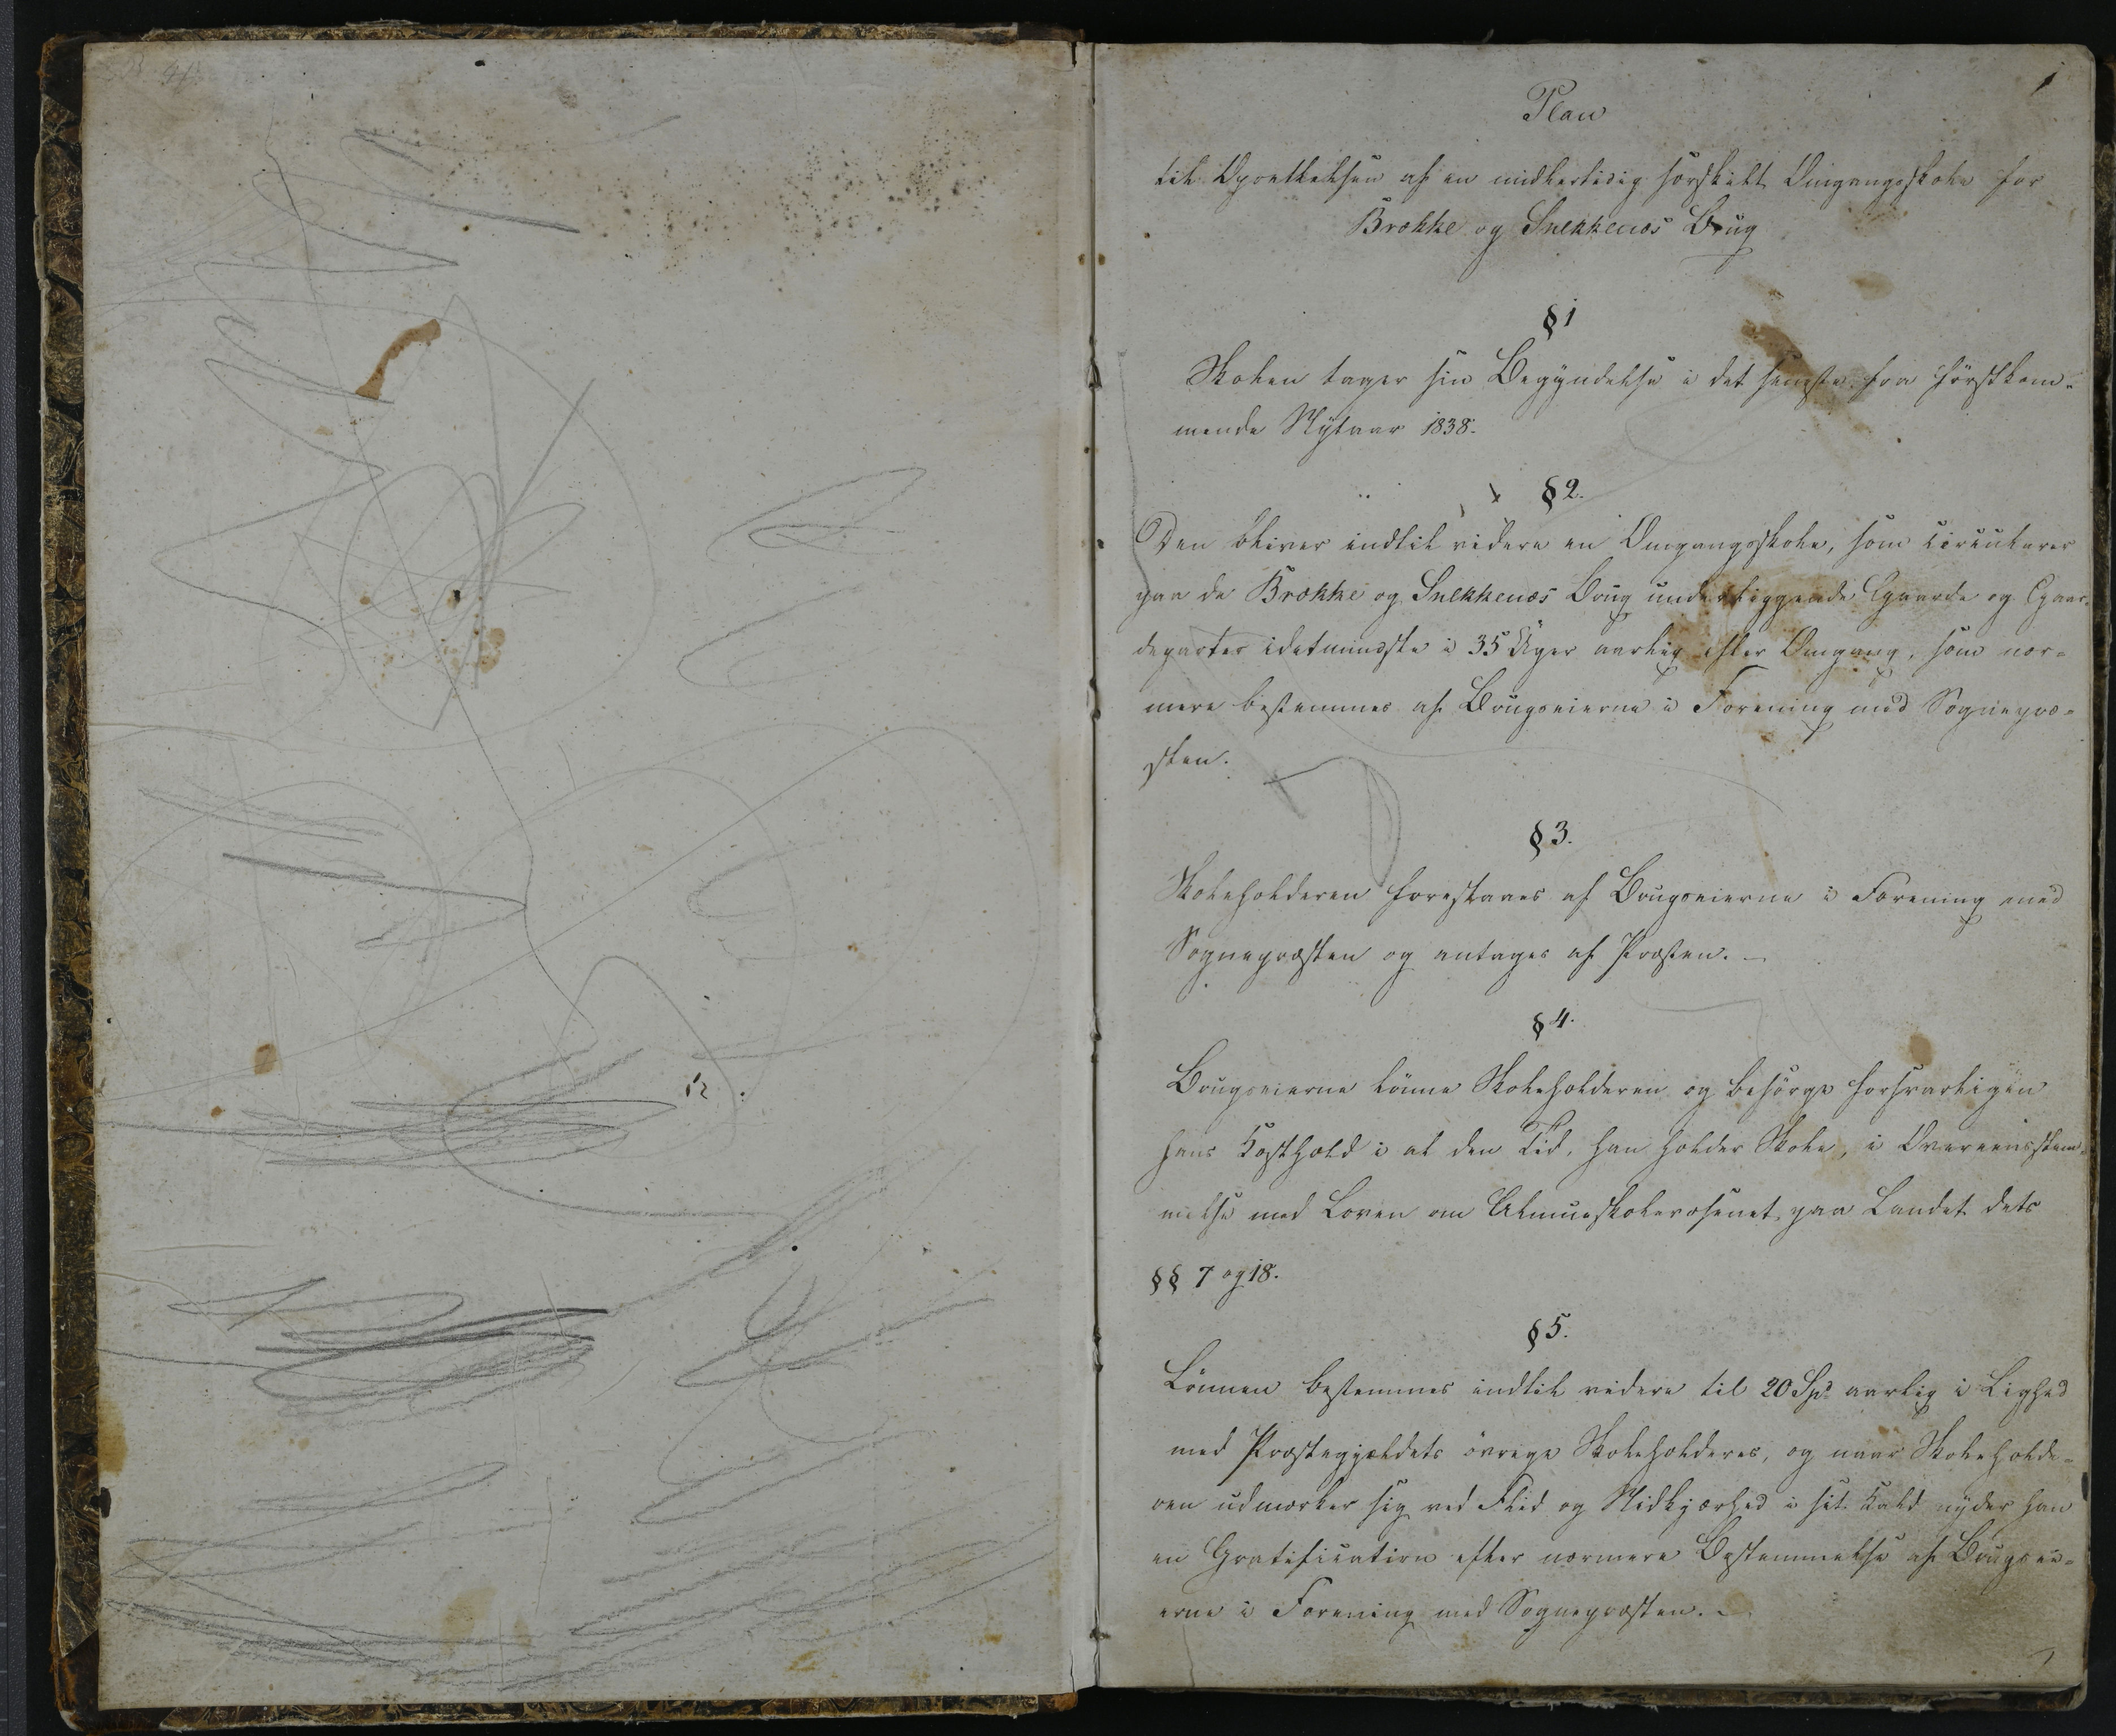 1
Plan
til Oprettelsen af en midlertidig særskilt Omgangsskole for
Brække og Snekkenæs Brug
§ 1
Skolen tager sin Begyndelse i det seneste fra førstkom-
mende Nytaar 1838.
§ 2.
Den bliver indtil videre en Omgangsskole, som circulerer
paa de Brække og Snekkenæs Brug underliggende Gaarde og Gaar-
departer idetmindste i 35 Uger aarlig efter Omgang, som nær-
mere bestemmes af Brugseierne i Forening med Sognepræ-
sten.
§ 3.
Skoleholderen foreslaaes af Brugseierne i Forening med
Sognepræsten og antages af Provsten.
§ 4.
Brugseierne lønne Skoleholderen og besørge forsvarligen
hans Kosthold i al den Tid, han holder Skole, i Overeensstem-
melse med Loven om Almueskolevæsenet paa Landet dets
§§ 7 og 18.
§ 5.
Lønnen bestemmes indtil videre til 20 Spd aarlig i Lighed
med Præstegjeldets øvrige Skoleholderes, og naar Skoleholde-
ren udmærker sig ved Flid og Nidkjærhed i sit Kald nyder han
en Gratification efter nærmere Bestemmelse af Brugsei-
erne i Forening med Sognepræsten.